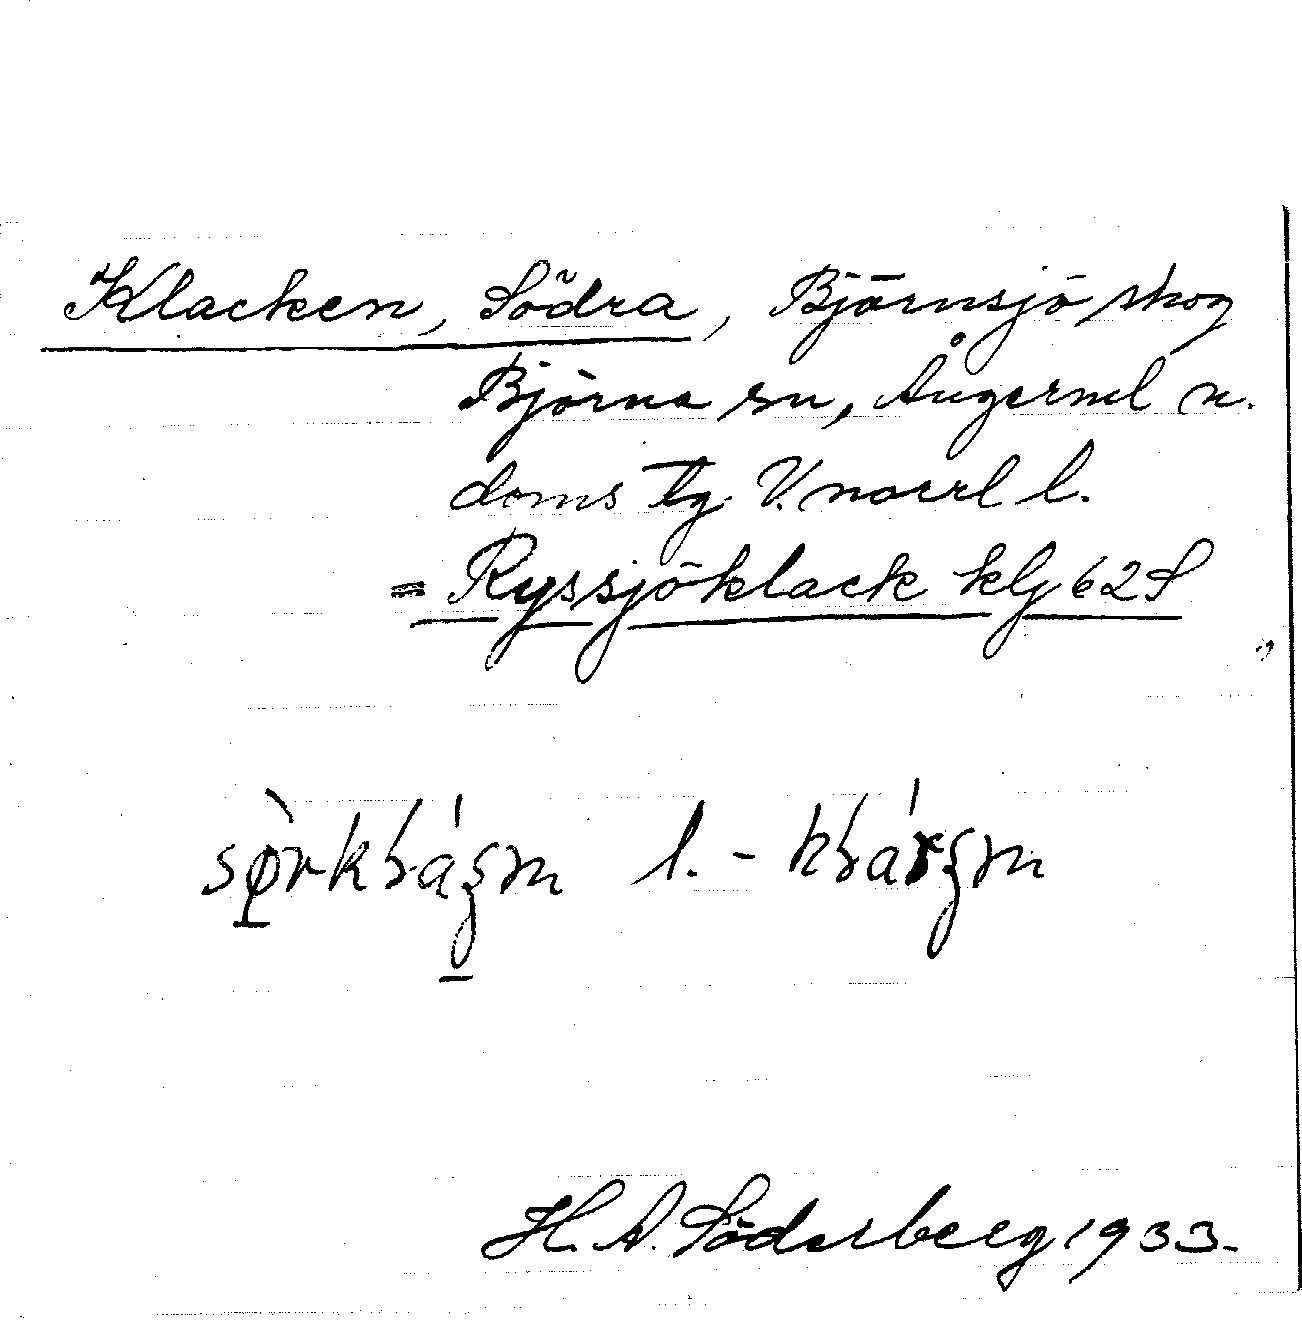 Klacken, Södra, Björnsjö skog
Björna sn, Ångerml n.
doms tg V.norrl l.
= Ryssjöklack klj 62 S
l. -
H. A. Söderberg 1933.